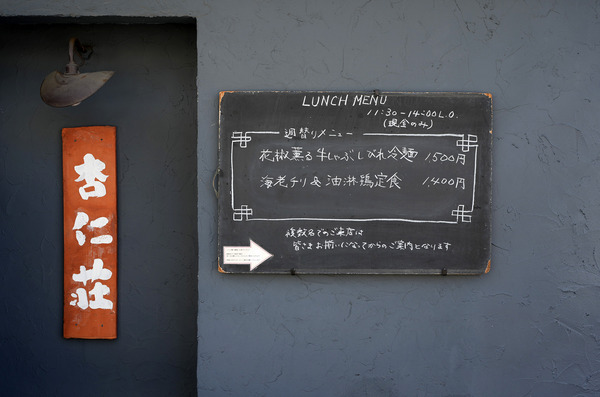 杏仁荘
LUNCH MENU
11:30-14:00 L.O.
(現金のみ)
週替りメニュー
花椒薫る牛しゃぶしびれ冷麺 1,500円
海老チリ & 油淋鶏定食 1,400円
複数名でのご来店は
皆さまお揃いになってからのご案内となります